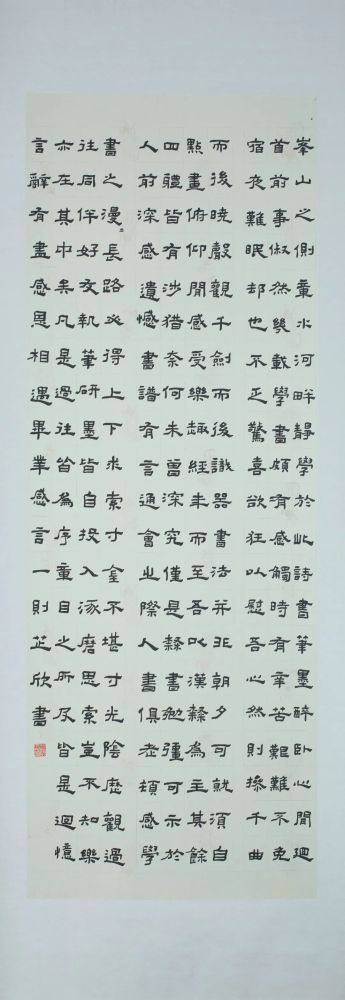 峯山之側童水河畔靜學於此詩書筆墨醉臥心間迴
首前事俶然幾載學書頗有感觸時有辛苦艱難不免
宿夜難眠却也不乏驚喜欲狂以慰吾心然則操千曲
而後曉聲觀千劍而後識器書法并非朝夕可就須自
點畫俯仰間感受樂趣經年而至吾以漢隸為主其餘
四體皆有涉猎奈何未曾深究僅是隸書勉彊可示於
人前深感遺憾書譜有言通會之際人書俱老頓感學
書之漫〻長路必得上下求索寸金不堪寸光陰歷觀過
往同伴好友執筆研墨皆自投入涿磨思索豈不知樂
亦在其中矣凡是過往皆為序章目之所及皆是迴憶
言辭有盡感恩相遇畢業感言一則芷欣書